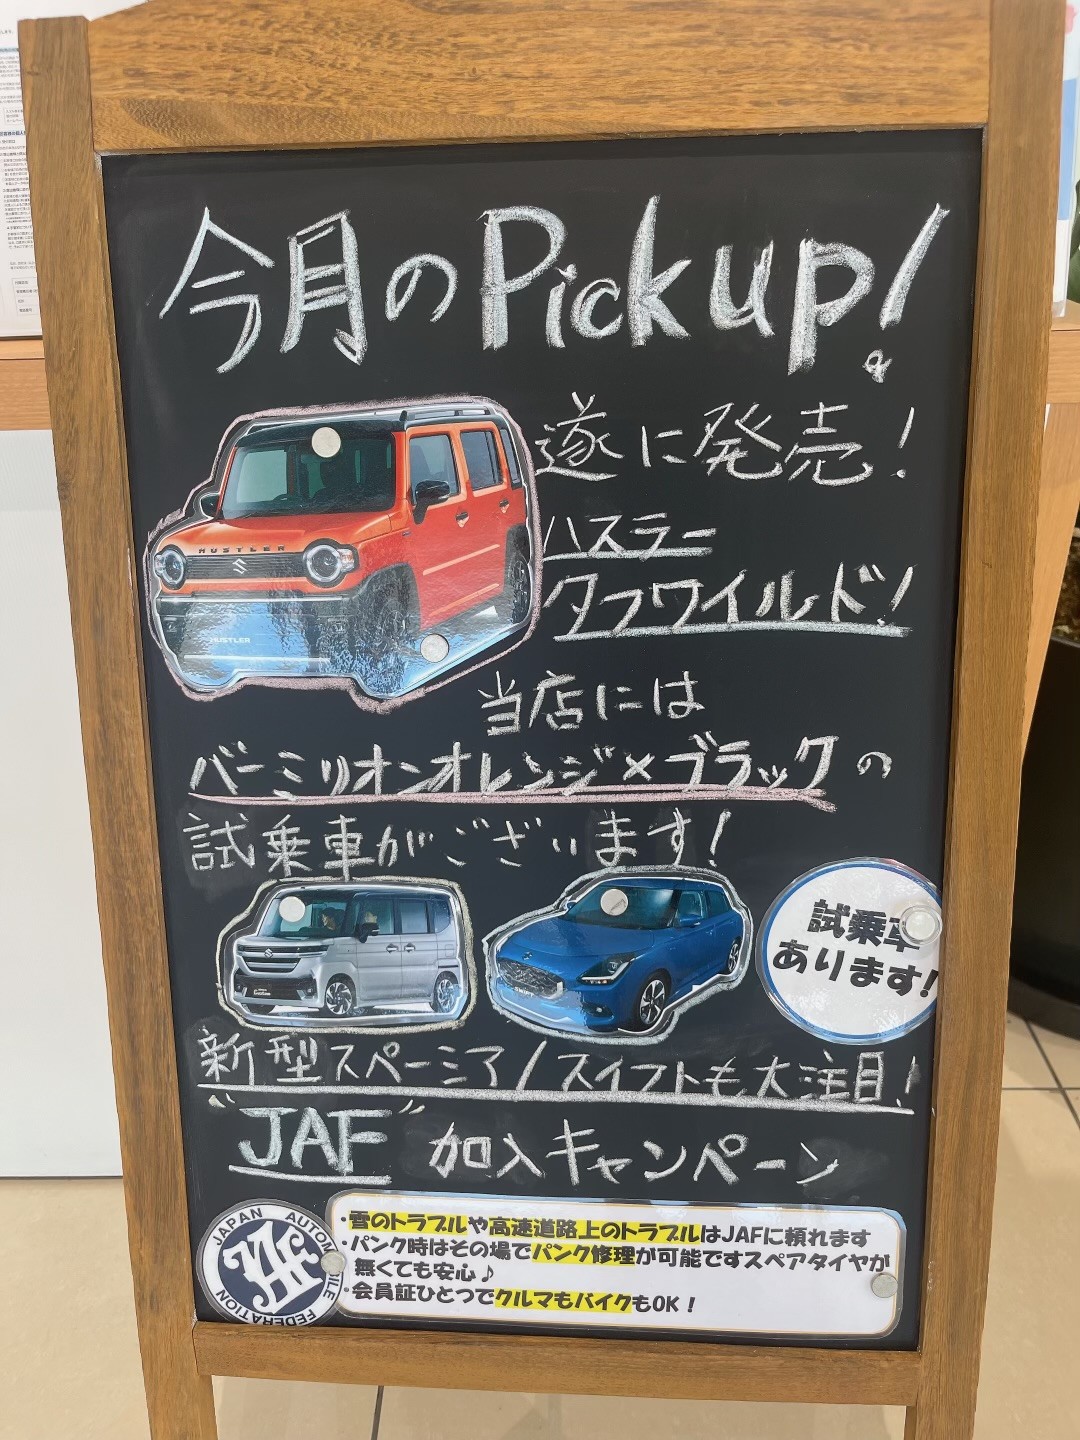 今月のPick up!
遂に発売!
ハスラー
タフワイルド!
HUSTLER
HUSTLER
当店には
バーミリオンオレンジ×ブラックの
試乗車がございます!
試乗車
あります!
SWIFT
新型スペーシア/スイフトも大注目!
"JAF" 加入キャンペーン
JAPAN AUTOMOBILE FEDERATION
JAF
・雪のトラブルや高速道路上のトラブルはJAFに頼れます
・パンク時はその場でパンク修理が可能ですスペアタイヤが
無くても安心♪
・会員証ひとつでクルマもバイクもOK!